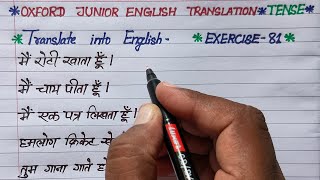 *OXFORD JUNIOR ENGLISH TRANSLATION* *TENSE*
*Translate into English- *EXERCISE-81*
मैं रोटी खाता हूँ।
मैं चाय पीता हूँ।
मैं एक पत्र लिखता हूँ।
हमलोग क्रिकेट
तुम गाना गाते